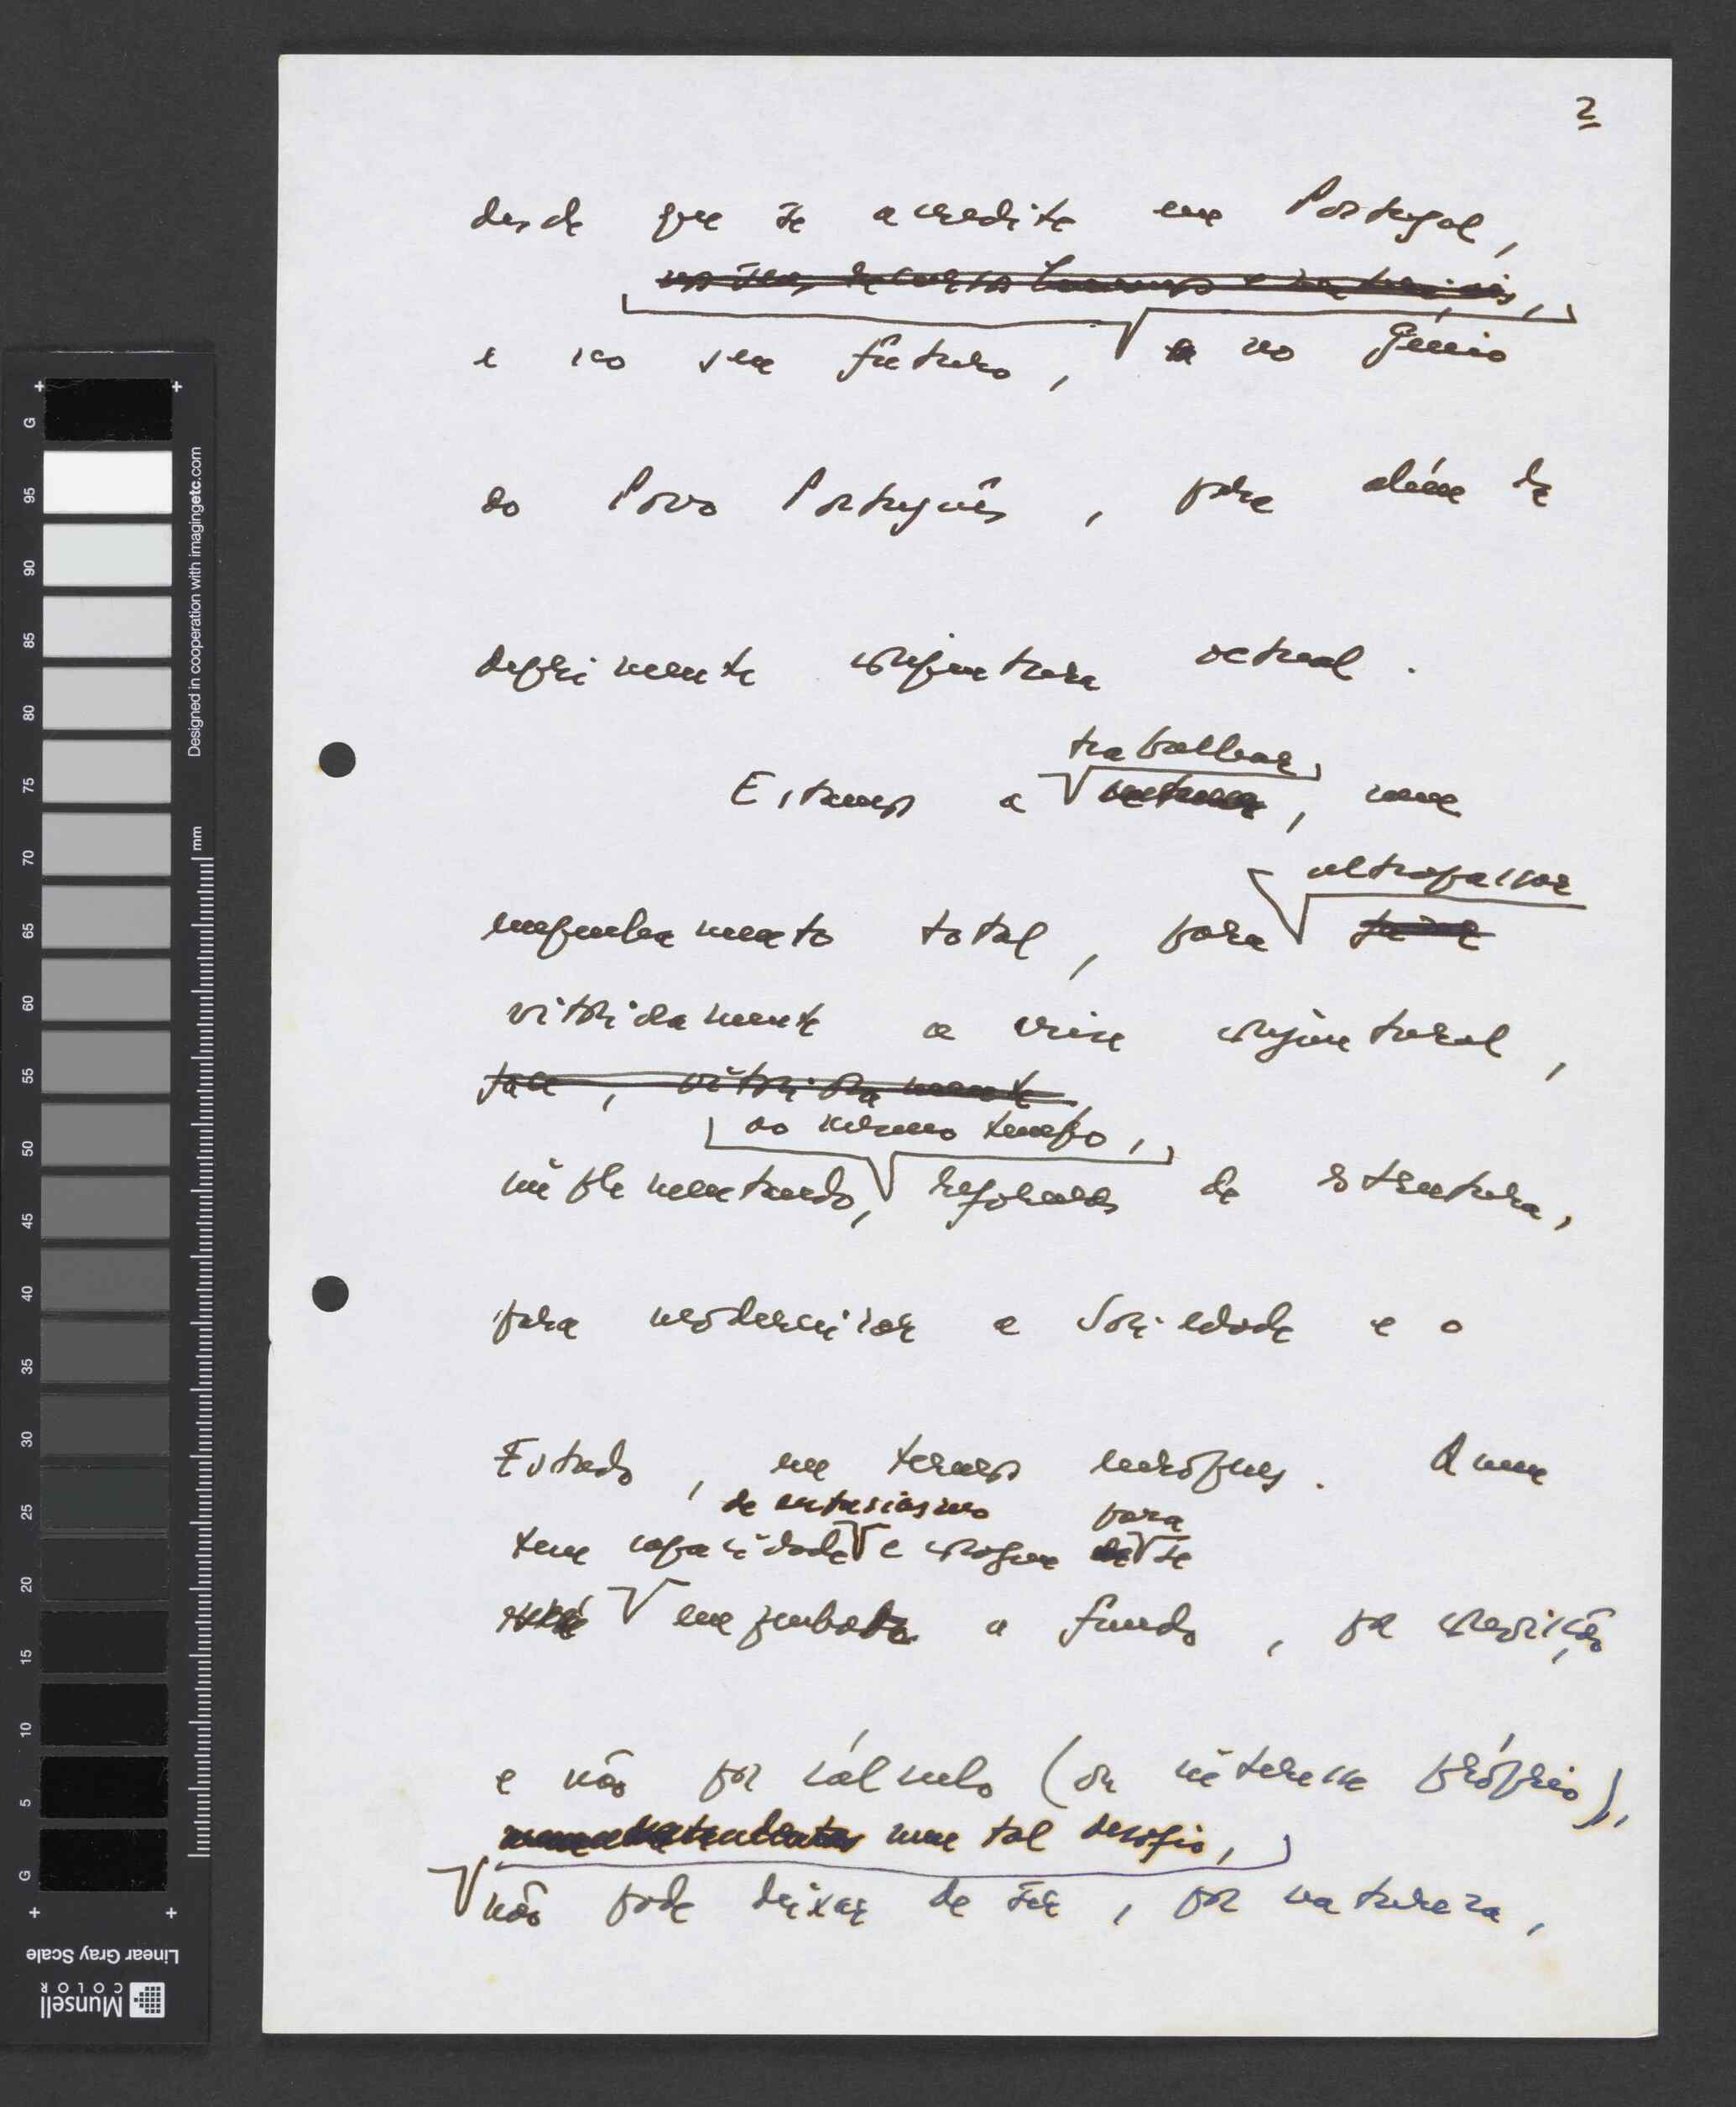 2
desde que se acredite em Portugal,
nos seus recursos humanos e materiais,
e no seu futuro, no Génio
do Povo Português, para além da
deprimente conjuntura actual.
trabalhar
Estamos a, com
ultrapassar
empenhamento total, para
vitoriosamente a crise conjuntural,
, vitoriosamente
ao mesmo tempo,
implementando, reformas de estrutura,
para modernizar a Sociedade e o
Estado, em termos europeus. Quem
de entusiasmo para
tem capacidade e coragem se
empenhar a fundo, por convicção
e não por cálculo (ou interesse próprio),
num tal desafio,
não pode deixar de ser, por natureza,
G
95
90
85
80
75
70
65
60
55
50
45
40
35
30
25
20
15
10
5
G
Designed in cooperation with imagingetc.com
mm
Linear Gray Scale
Munsell
COLOR